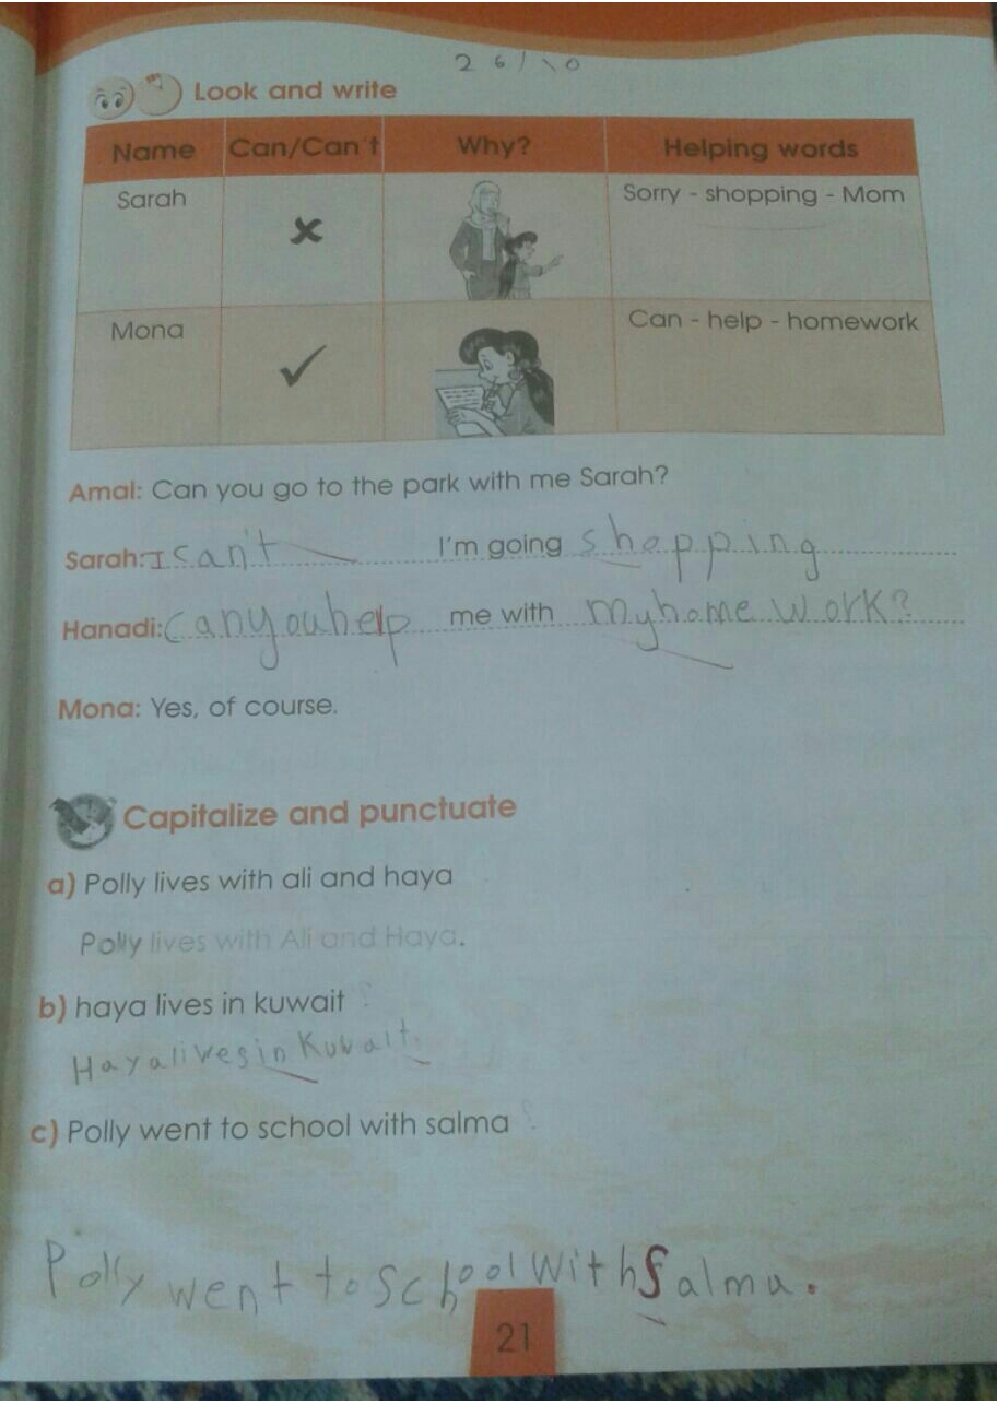 26/10
Look and write
Name Can/Can't Why? Helping words
Sarah Sorry - shopping - Mom
Mona Can - help - homework
Amal: Can you go to the park with me Sarah?
Sarah: I can't I'm going shopping
Hanadi: can you help me with my home work?
Mona: Yes, of course.
Capitalize and punctuate
a) Polly lives with ali and haya
Polly lives with Ali and Haya.
b) haya lives in kuwait
Haya lives in Kuwait.
c) Polly went to school with salma
Polly went to school with Salma.
21